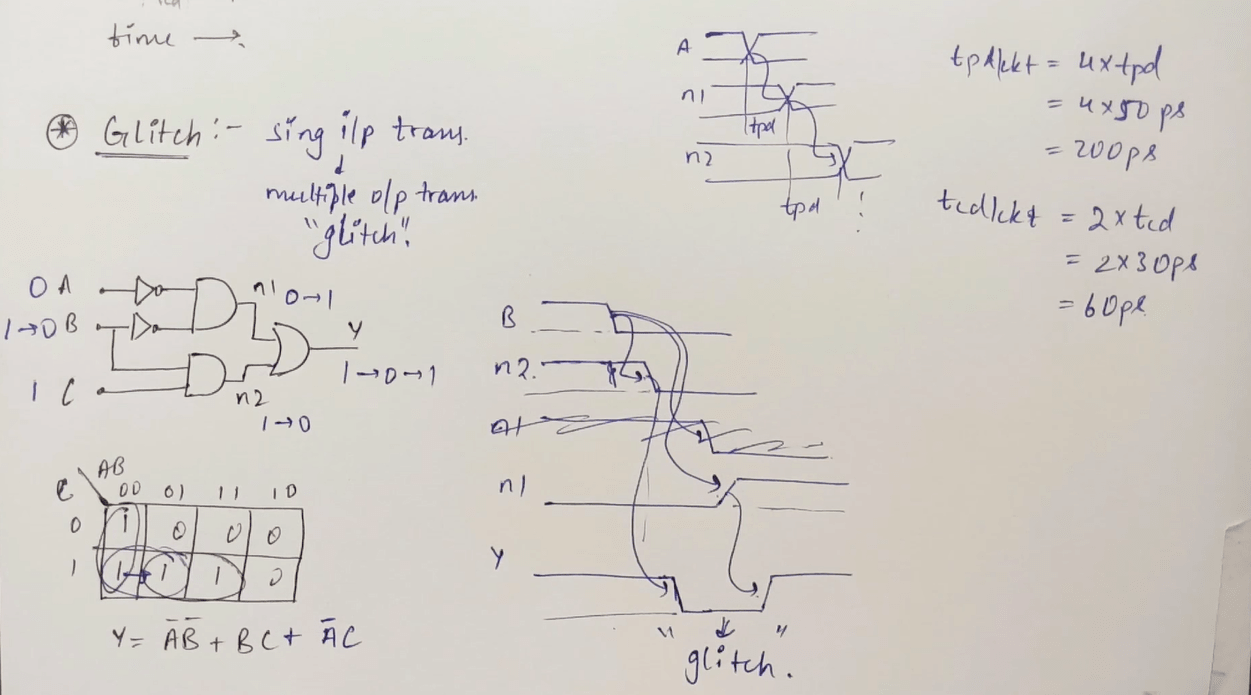 time →
* Glitch :- sing i/p trans.
↓
multiple o/p trans.
"glitch".
A
n1
tpd
n2
tpd
tpd/ckt = 4 x tpd
= 4 x 50 ps
= 200 ps
tcd/ckt = 2 x tcd
= 2 x 30 ps
= 60 ps
0 A
n1 0→1
1→0 B
Y
1→0→1
1 C
n2
1→0
B
n2.
n1
Y
" "
glitch.
AB
C 00 01 11 10
0 1 0 0 0
1 1 1 1 0
Y = A̅B̅ + BC + A̅C